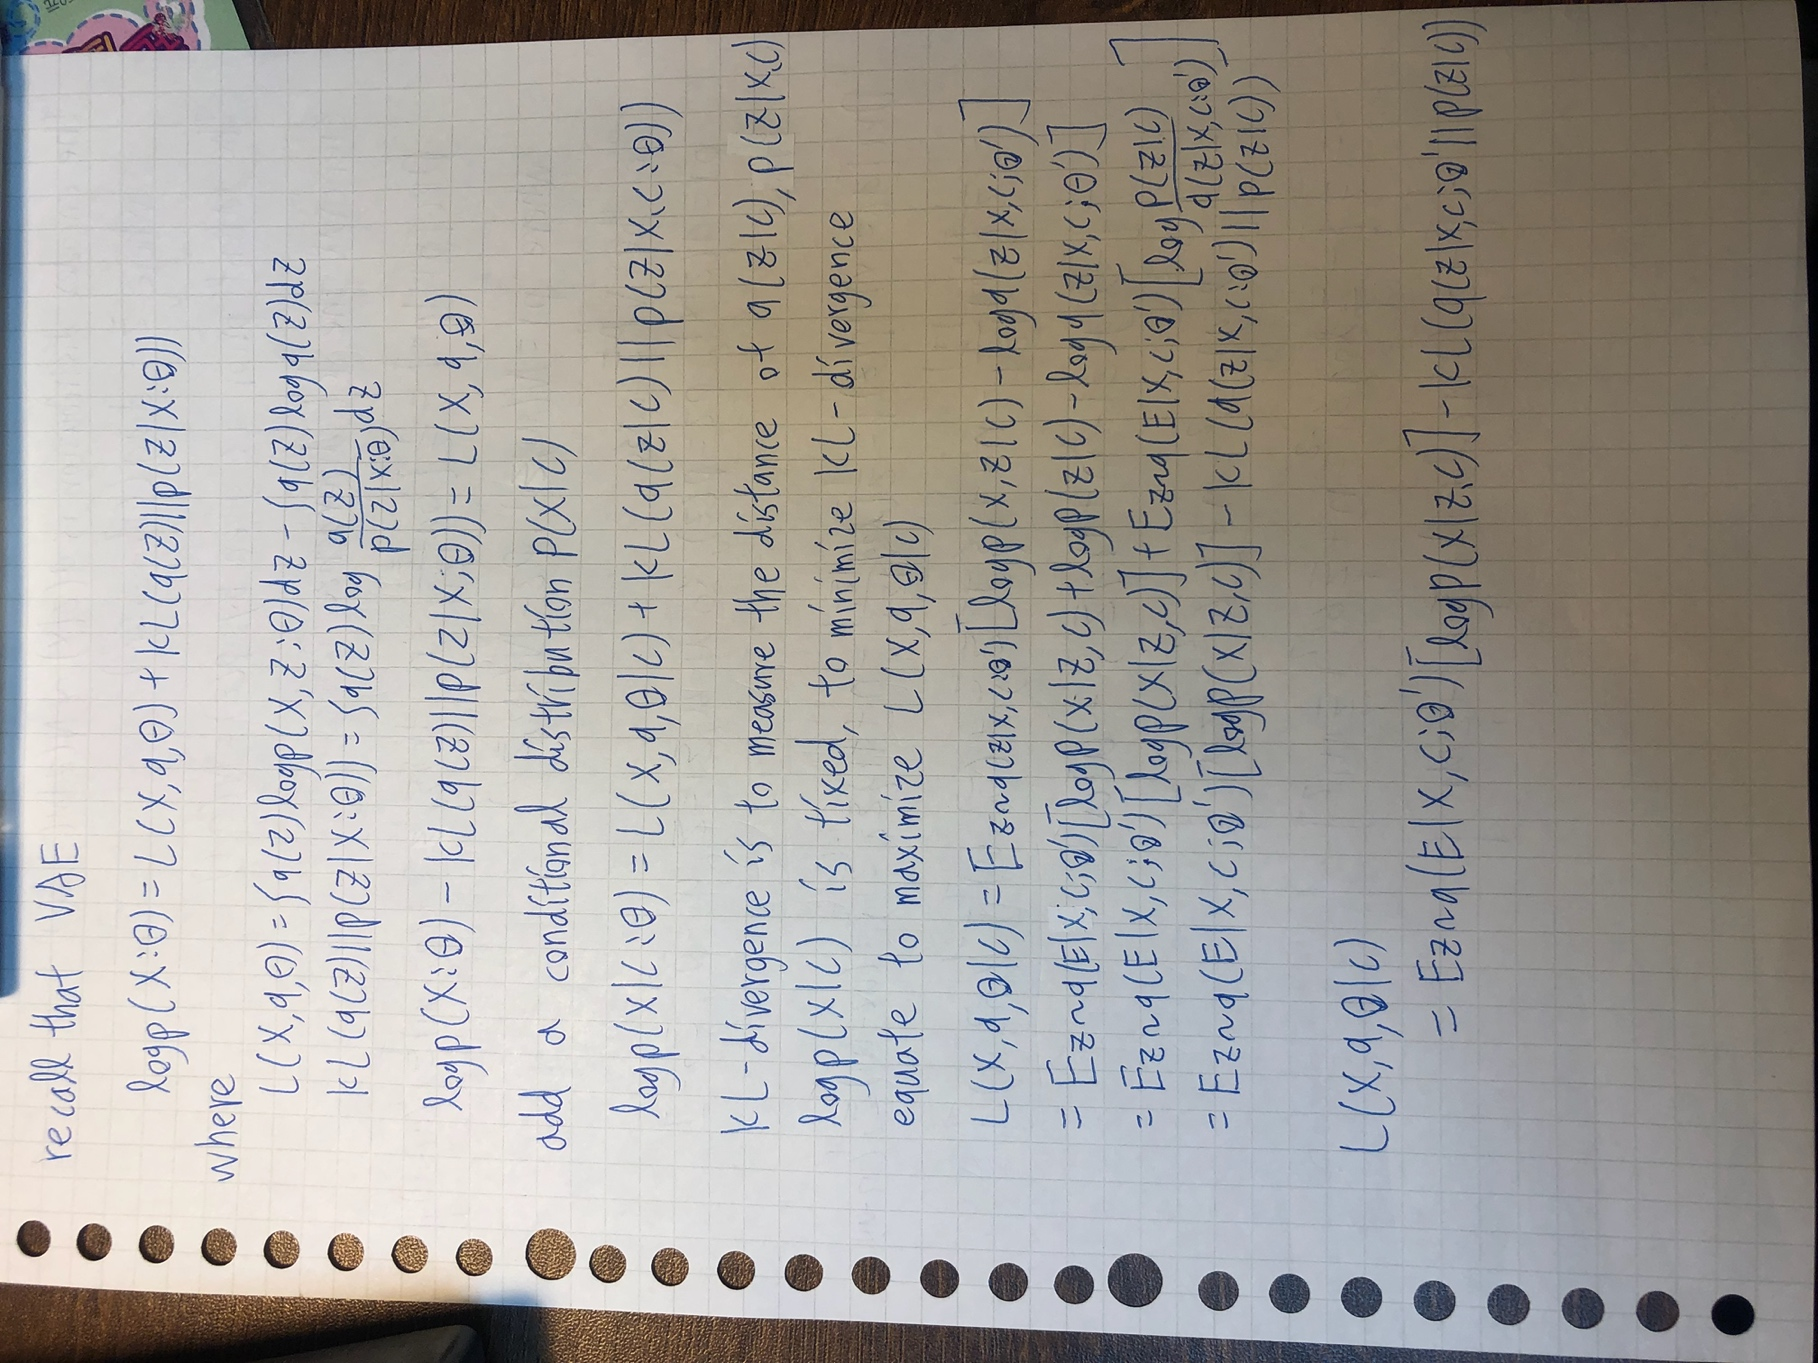 recall that VAE
logp(X;θ) = L(X,q,θ) + KL(q(Z)||p(Z|X;θ))
where
L(X,q,θ) = ∫q(Z)logp(X,Z;θ)dZ - ∫q(Z)logq(Z)dZ
KL(q(Z)||p(Z|X;θ)) = ∫q(Z)log q(Z)/p(Z|X;θ) dZ
logp(X;θ) - KL(q(Z)||p(Z|X;θ)) = L(X,q,θ)
add a conditional distribution P(X|c)
logp(X|c;θ) = L(X,q,θ|c) + KL(q(Z|c)||p(Z|X,c;θ))
KL-divergence is to measure the distance of q(Z|c), p(Z|X,c)
logp(X|c) is fixed, to minimize KL-divergence
equate to maximize L(X,q,θ|c)
L(X,q,θ|c) = Ez~q(Z|X,c;θ')[logp(X,Z|c) - logq(Z|X,c;θ')]
= Ez~q(E|X,c;θ')[logp(X|Z,c) + logp(Z|c) - logq(Z|X,c;θ')]
= Ez~q(E|X,c;θ')[logp(X|Z,c)] + Ez~q(E|X,c;θ')[log p(Z|c)/q(Z|X,c;θ')]
= Ez~q(E|X,c;θ')[logp(X|Z,c)] - KL(q(Z|X,c;θ')||p(Z|c))
L(X,q,θ|c)
= Ez~q(E|X,c;θ')[logp(X|Z,c)] - KL(q(Z|X,c;θ'||p(Z|c))